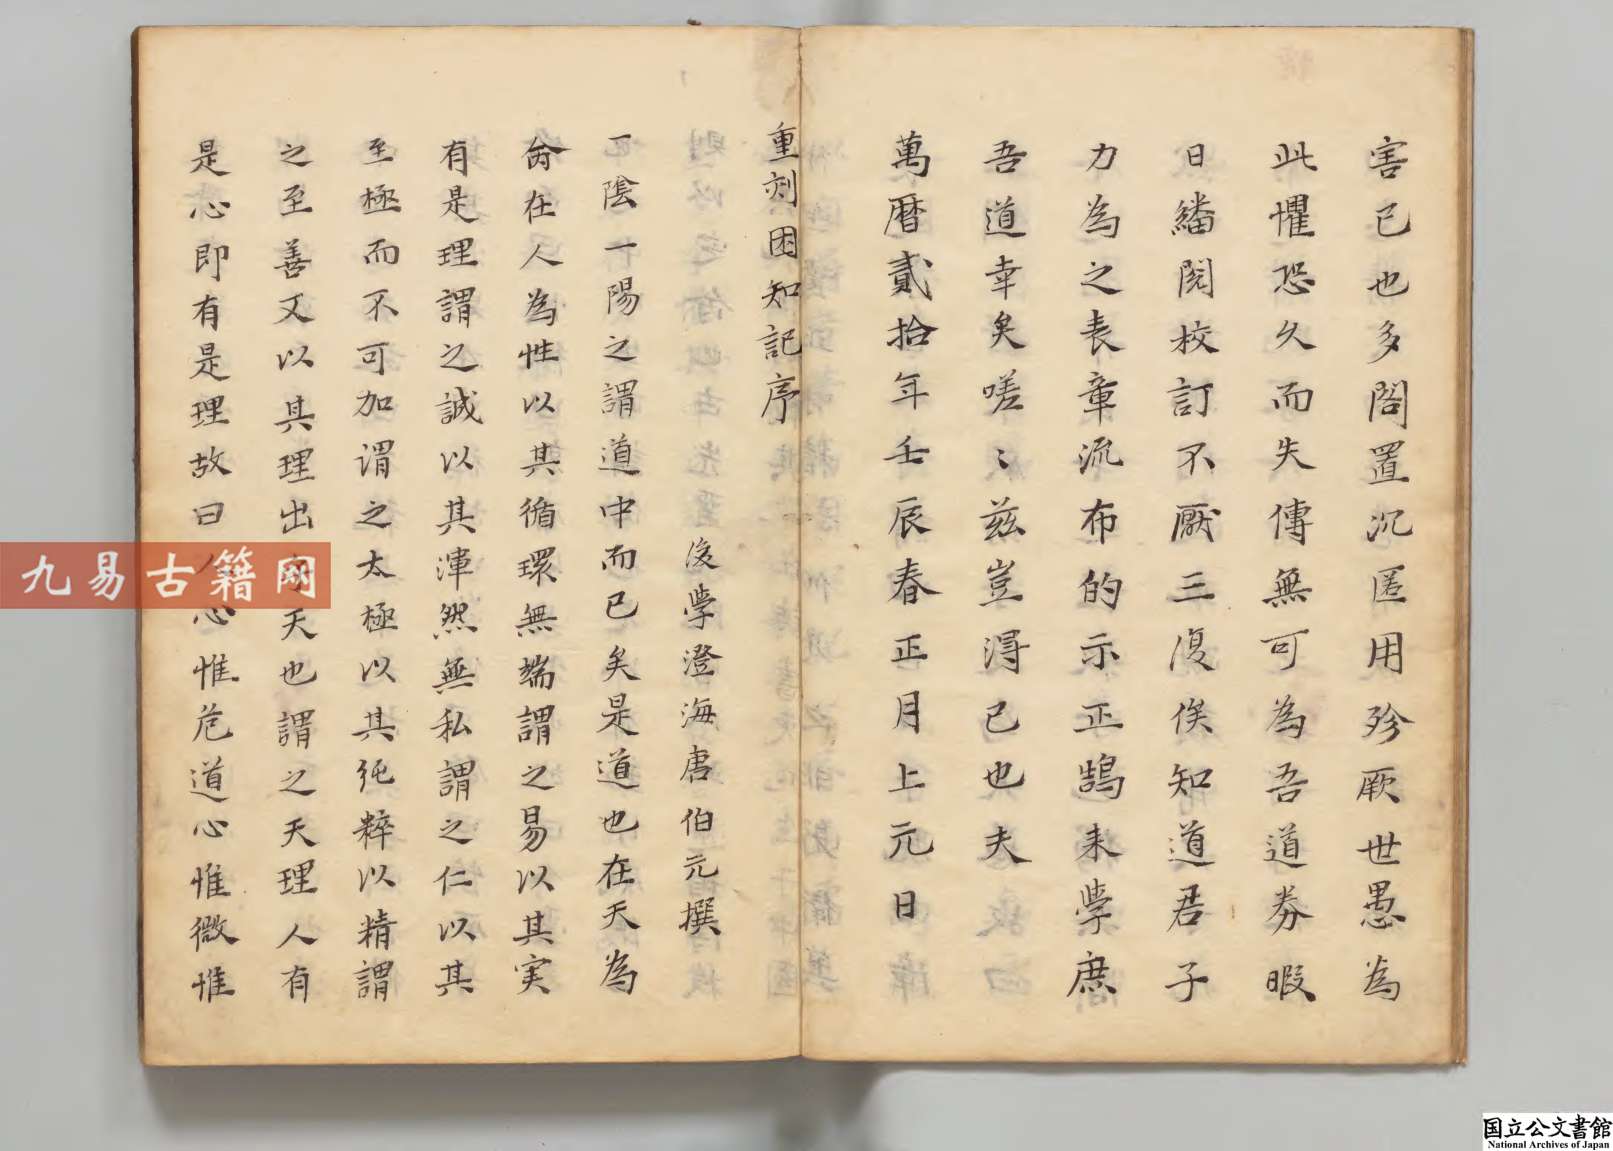 害已也多閣置沉匿用殄厥世愚為
此懼恐久而失傳無可為吾道劵暇
日繙閱校訂不厭三復俟知道君子
力為之表章流布的示正鵠来學庶
吾道幸矣嗟〻兹豈得已也夫
萬曆貳拾年壬辰春正月上元日
重刻困知記序
後學澄海唐伯元撰
一陰一陽之謂道中而已矣是道也在天為
命在人為性以其循環無端謂之易以其実
有是理謂之誠以其渾然無私謂之仁以其
至極而不可加谓之太極以其純粹以精謂
之至善又以其理出乎天也謂之天理人有
是心即有是理故曰人心惟危道心惟微惟
九易古籍网
国立公文書館
National Archives of Japan